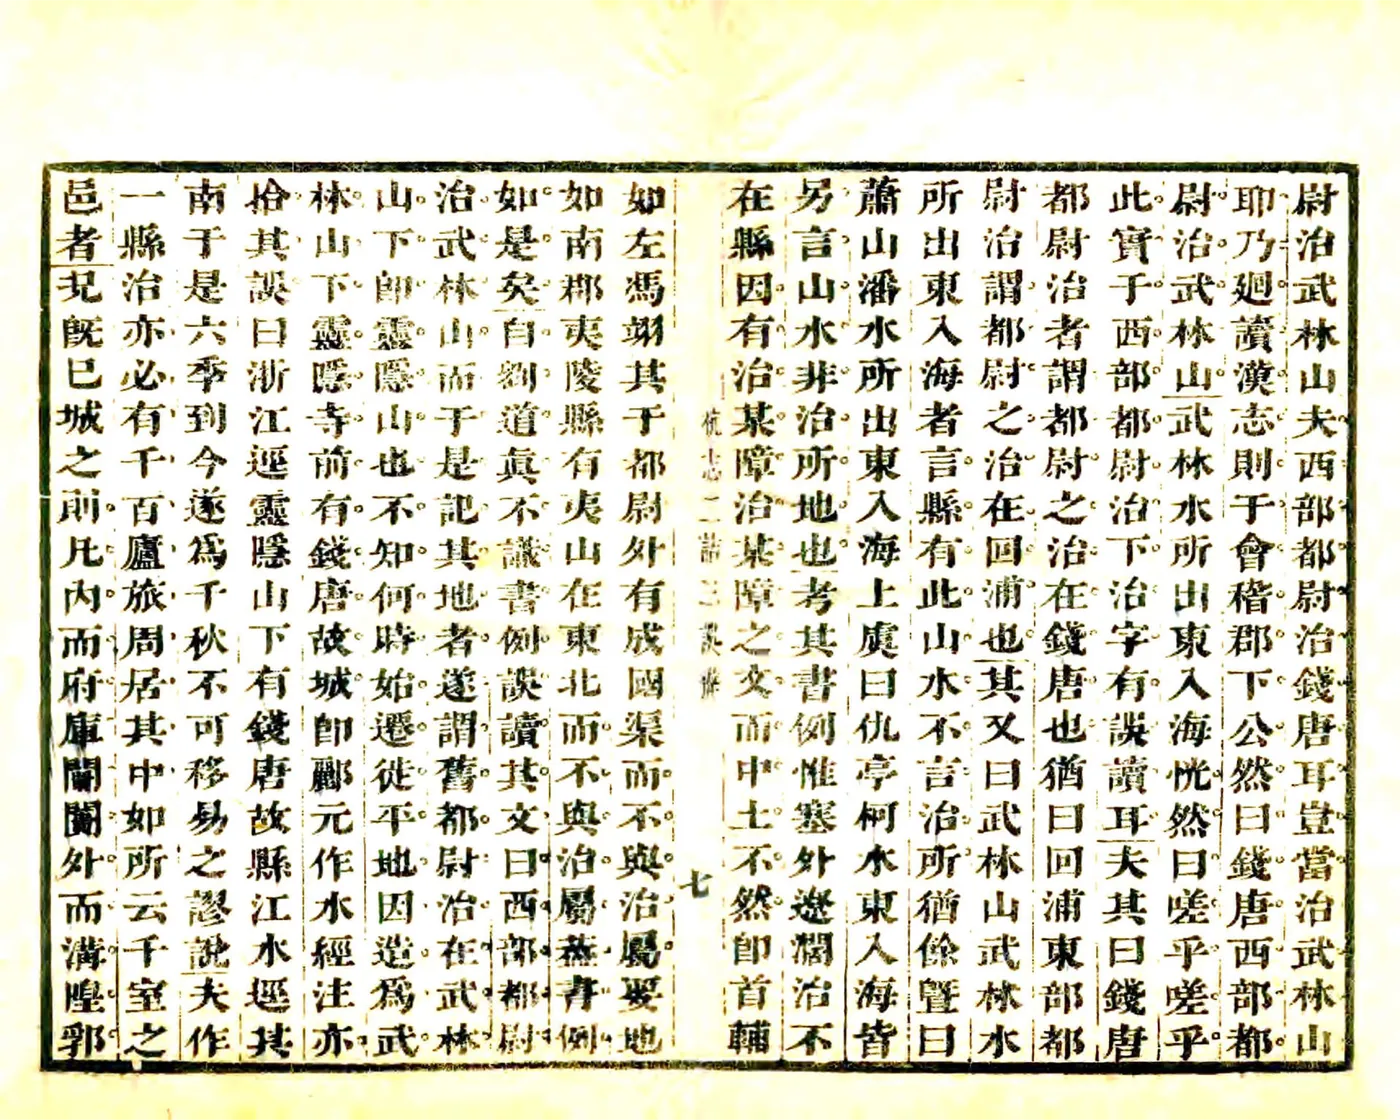 尉治武林山夫西部都尉治錢唐耳豈當治武林山
耶乃廻讀漢志則于會稽郡下公然曰錢唐西部都
尉治武林山武林水所出東入海恍然曰嗟乎嗟乎
此實于西部都尉治下治字有誤讀耳夫其曰錢唐
都尉治者謂都尉之治在錢唐也猶曰回浦東部都
尉治謂都尉之治在回浦也其又曰武林山武林水
所出東入海者言縣有此山水不言治所猶餘暨曰
蕭山潘水所出東入海上虞曰仇亭柯水東入海皆
另言山水非治所地也考其書例惟塞外遼濶治不
在縣因有治某障治某障之文而中土不然卽首輔
杭志三詰三誤辨
七
如左馮翊其于都尉外有成國渠而不與治屬要地
如南郡夷陵縣有夷山在東北而不與治屬蓋書例
如是矣自劉道眞不識書例誤讀其文曰西部都尉
治武林山而于是記其地者遂謂舊都尉治在武林
山下卽靈隱山也不知何時始遷徙平地因造爲武
林山下靈隱寺前有錢唐故城卽酈元作水經注亦
拾其誤曰浙江逕靈隱山下有錢唐故縣江水逕其
南于是六季到今遂爲千秋不可移易之謬說夫作
一縣治亦必有千百廬旅周居其中如所云千室之
邑者況旣已城之前凡内而府庫闤闠外而溝隍郛